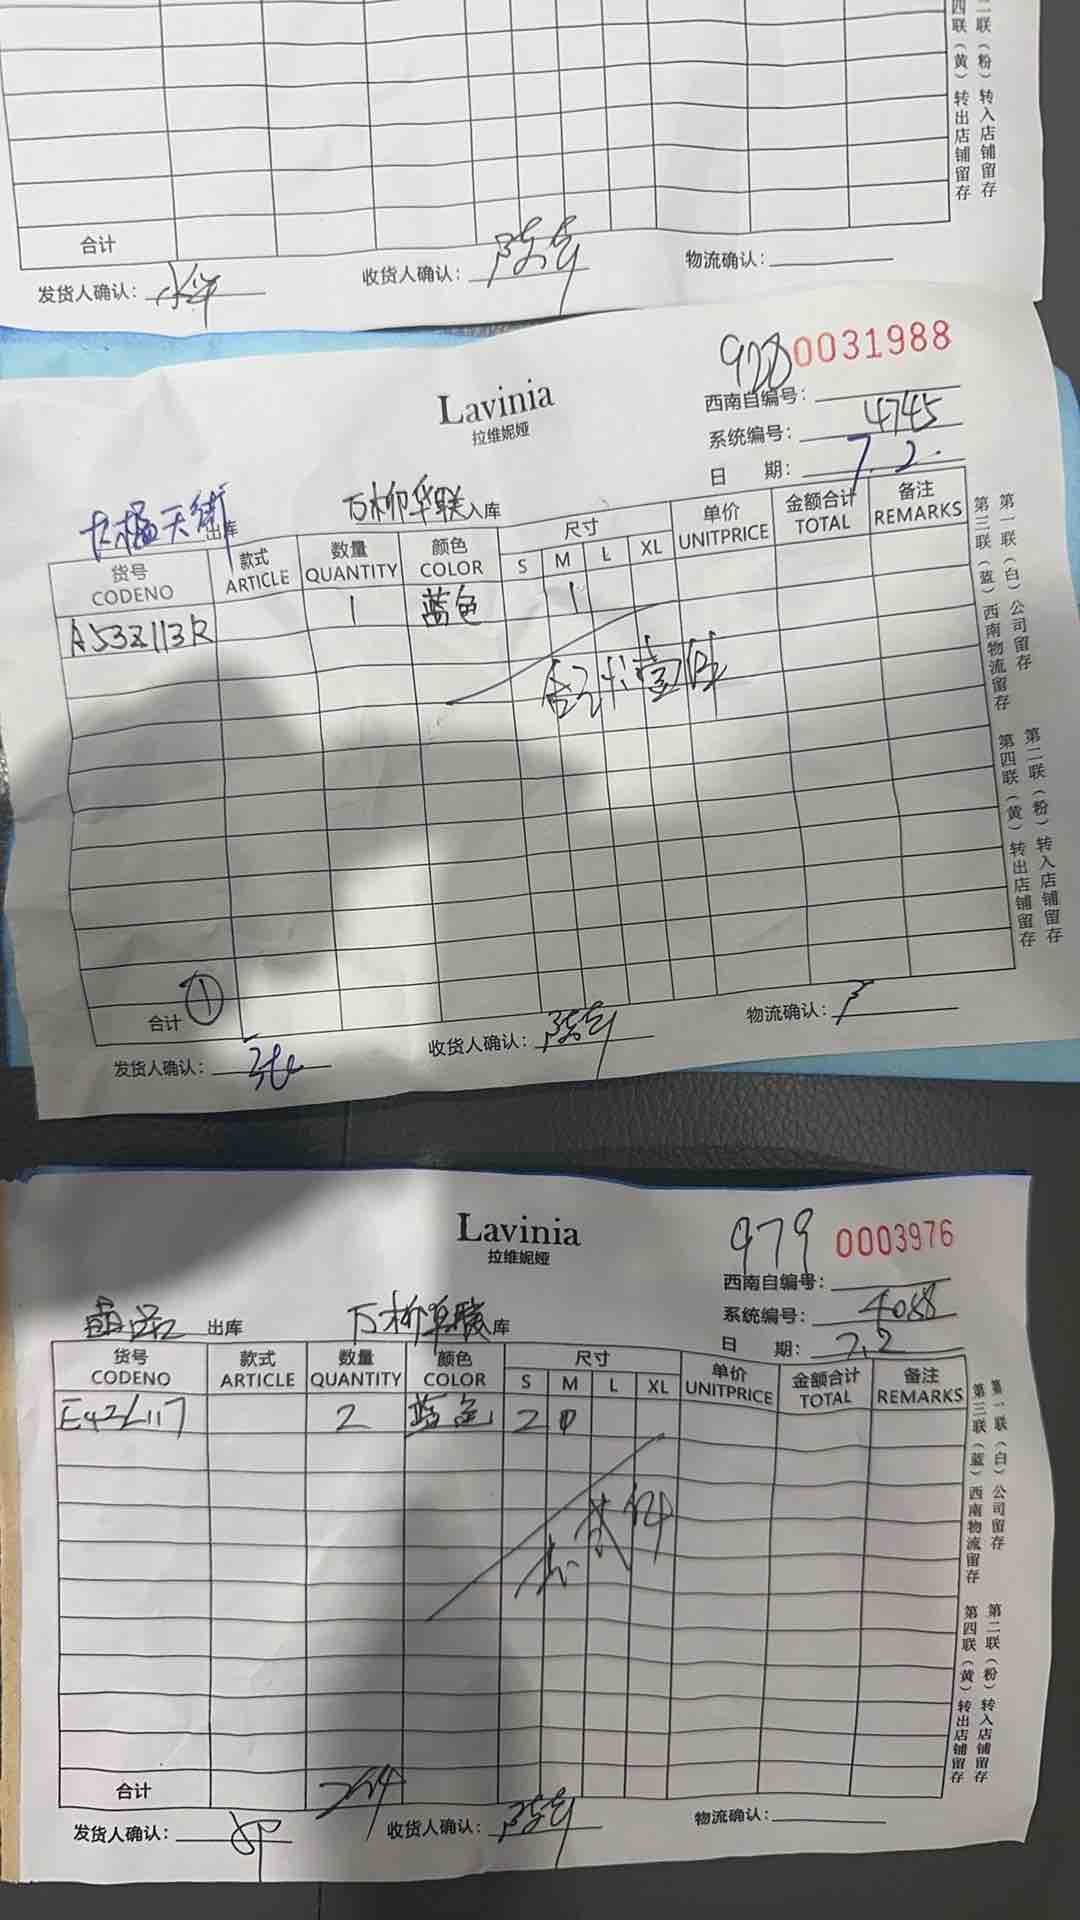 第二联（粉）转入店铺留存
四联（黄）转出店铺留存
合计
发货人确认：
收货人确认：陈奇
物流确认：
928 0031988
Lavinia
拉维妮娅
西南自编号：
系统编号：4745
日 期：7.2.
大橘天街出库 万柳华联入库
货号 款式 数量 颜色 尺寸 单价 金额合计 备注
CODENO ARTICLE QUANTITY COLOR S M L XL UNITPRICE TOTAL REMARKS
A53Z113R 1 蓝色 1
合计壹件
第一联（白）公司留存
第三联（蓝）西南物流留存
第二联（粉）转入店铺留存
第四联（黄）转出店铺留存
合计 1
发货人确认：张
收货人确认：陈奇
物流确认：
Lavinia
拉维妮娅
979 0003976
西南自编号：
系统编号：4058
日 期：7.2
出库 万柳华联库
货号 款式 数量 颜色 尺寸 单价 金额合计 备注
CODENO ARTICLE QUANTITY COLOR S M L XL UNITPRICE TOTAL REMARKS
E42L117 2 蓝色 2 0
共 贰件
第一联（白）公司留存
第三联（蓝）西南物流留存
第二联（粉）转入店铺留存
第四联（黄）转出店铺留存
合计 2件
发货人确认：
收货人确认：陈奇
物流确认：